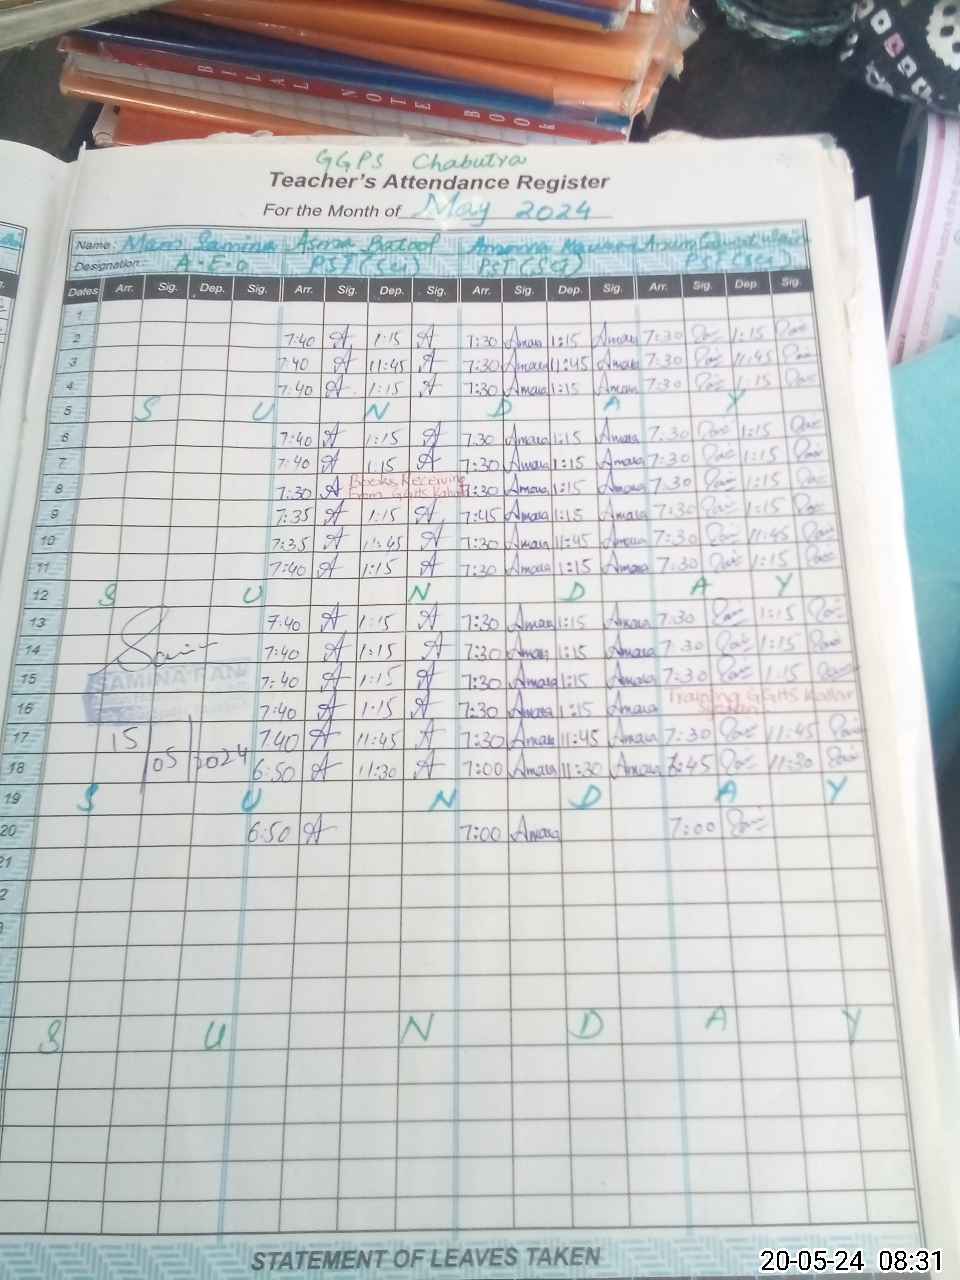 BILAL NOTE BOOK
GGPS Chabutra
Teacher's Attendance Register
For the Month of May 2024
Name: Mam Samina Asma Batool
Designation: A.E.O PST (Sci) PST (Sci) PST (Sci)
Dates Arr. Sig. Dep. Sig. Arr. Sig. Dep. Sig. Arr. Sig. Dep. Sig. Arr. Sig. Dep. Sig.
1
2 7:40 A 1:15 A 7:30 Amara 1:15 Amara 7:30 1:15
3 7:40 A 11:45 A 7:30 Amara 11:45 Amara 7:30 11:45
4 7:40 A 1:15 A 7:30 Amara 1:15 Amara 7:30 1:15
5 S U N D A Y
6 7:40 A 1:15 A 7:30 Amara 1:15 Amara 7:30 1:15
7 7:40 A 1:15 A 7:30 Amara 1:15 Amara 7:30 1:15
8 7:30 A Books Receiving From 7:30 Amara 1:15 Amara 7:30 1:15
9 7:35 A 1:15 A 7:45 Amara 1:15 Amara 7:30 1:15
10 7:35 A 11:45 A 7:30 Amara 11:45 Amara 7:30 11:45
11 7:40 A 1:15 A 7:30 Amara 1:15 Amara 7:30 1:15
12 S U N D A Y
13 7:40 A 1:15 A 7:30 Amara 1:15 Amara 7:30 1:15
14 7:40 A 1:15 A 7:30 Amara 1:15 Amara 7:30 1:15
15 SAMINA 7:40 A 1:15 A 7:30 Amara 1:15 Amara 7:30 1:15
16 7:40 A 1:15 A 7:30 Amara 1:15 Amara Training GGHS Kallar
17 15 7:40 A 11:45 A 7:30 Amara 11:45 Amara 7:30 11:45
18 05 2024 6:50 A 11:30 A 7:00 Amara 11:30 Amara 11:30
19 S U N D A Y
20 6:50 A 7:00 Amara 7:00
21
S U N D A Y
STATEMENT OF LEAVES TAKEN
20-05-24 08:31